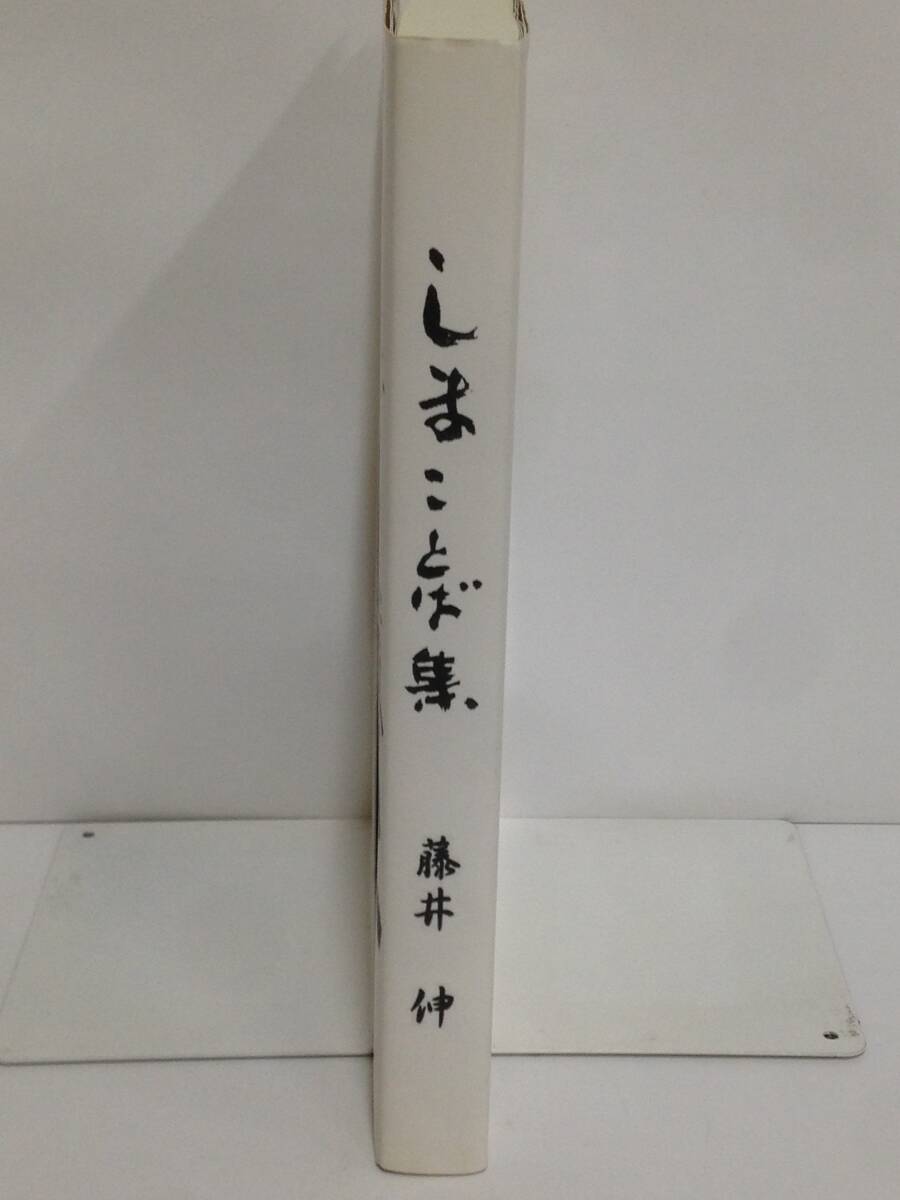 しまことば集
藤井 伸